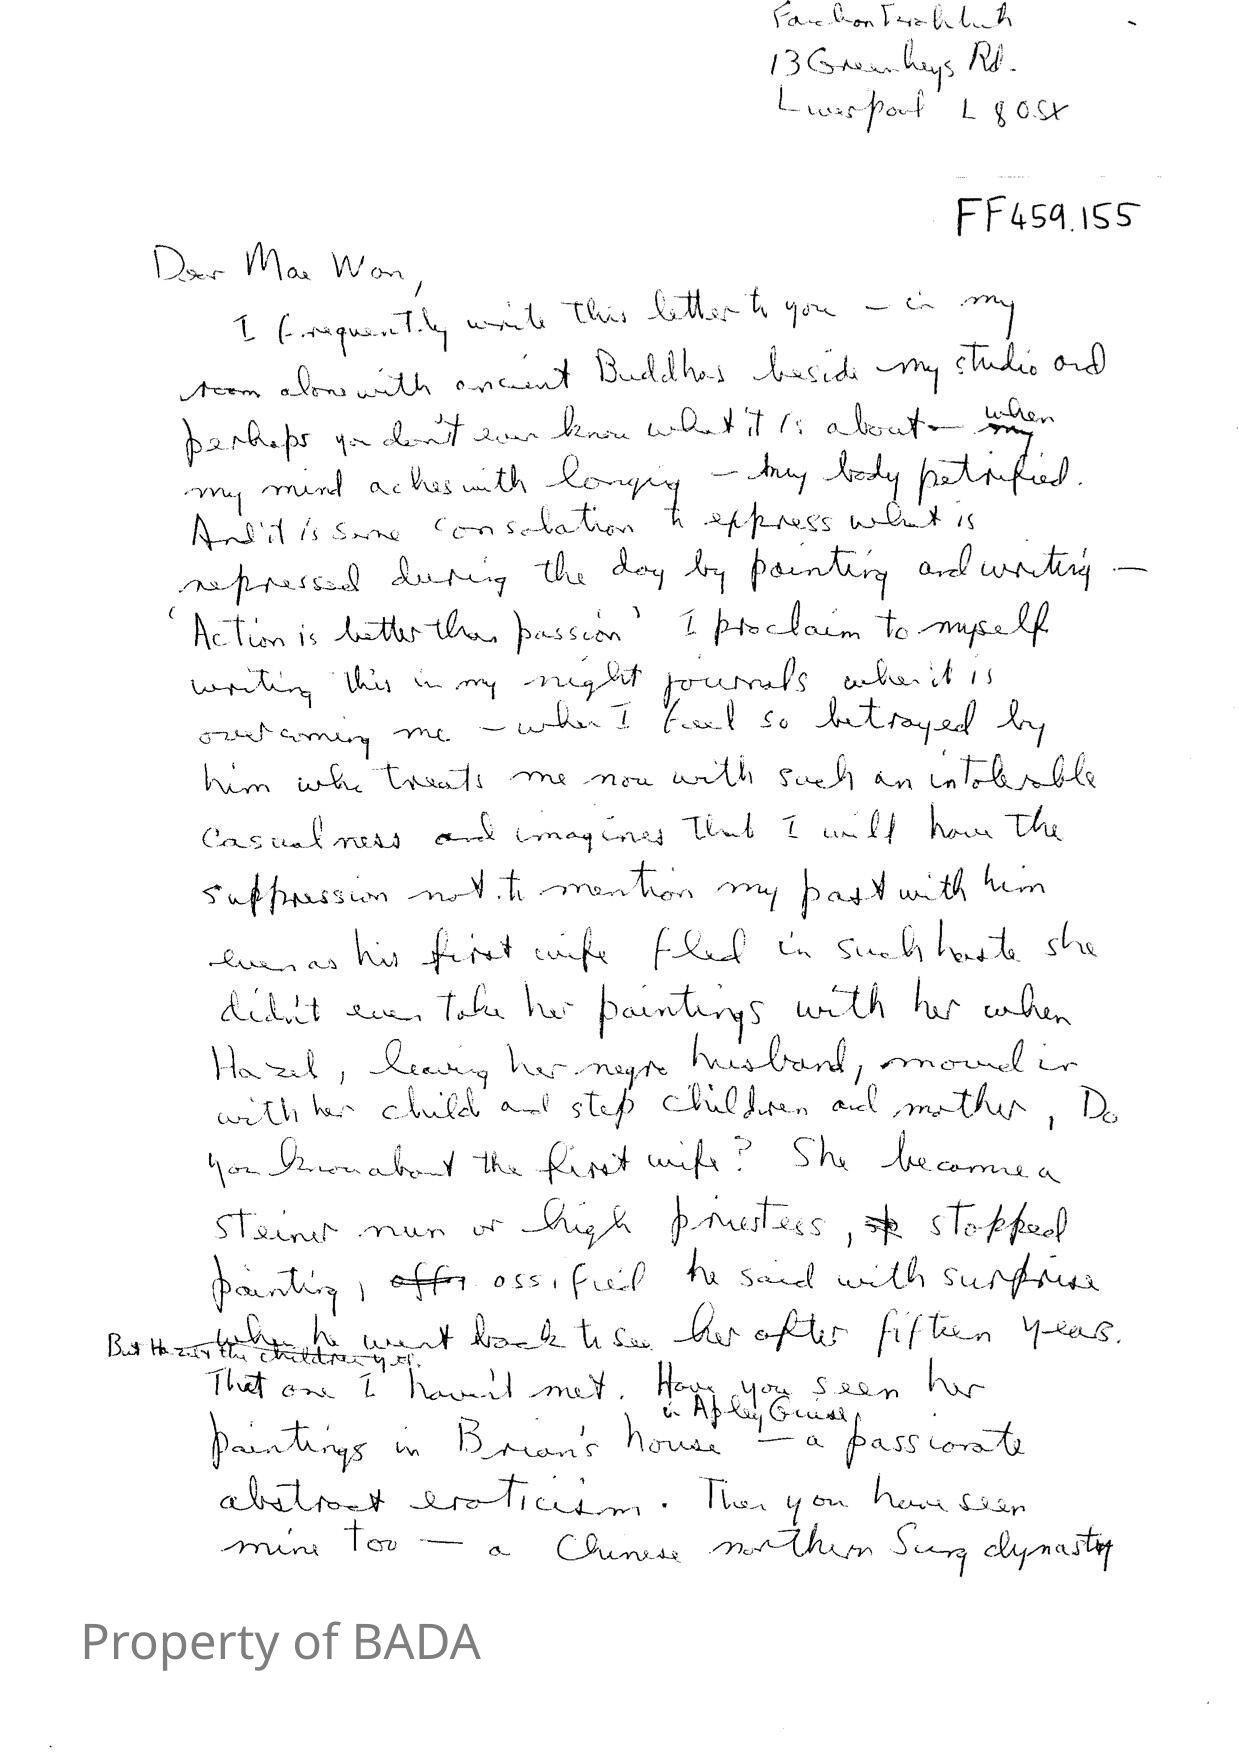 13 Greenheys Rd.
Liverpool L8 0SX
FF459.155
Dear Mae Wan,
I frequently write this letter to you – in my
room alone with ancient Buddhas beside my studio and
perhaps you don't even know what it is about – when
my mind aches with longing – my body petrified.
And it is some consolation to express what is
repressed during the day by painting and writing –
'Action is better than passion' I proclaim to myself
writing this in my night journals when it is
overcoming me – when I feel so betrayed by
him who treats me now with such an intolerable
casualness and imagines that I will have the
suppression not to mention my past with him
even as his first wife fled in such haste she
didn't even take her paintings with her when
Hazel, leaving her negro husband, moved in
with her child and step children and mother, Do
you know about the first wife? She became a
steiner nun or high priestess, stopped
painting, ossified he said with surprise
when he went back to see her after fifteen years.
But the children yes.
That one I haven't met. Have you seen her
in Apley Guise,
paintings in Brian's house – a passionate
abstract eroticism. Then you have seen
mine too – a Chinese northern Sung dynasty
Property of BADA